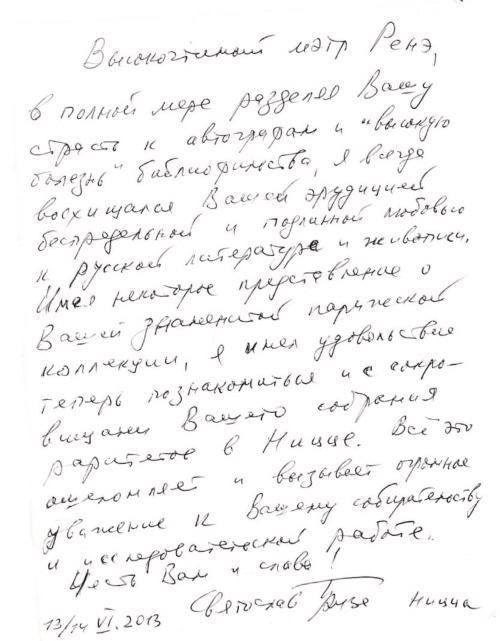 Высокочтимый мэтр Ренэ,
В полной мере разделяя Вашу
страсть к автографам и "высокую
болезнь" библиофильства, я всегда
восхищался Вашей эрудицией
беспредельной и подлинной любовью
к русской литературе и живописи.
Имея некоторое представление о
Вашей знаменитой парижской
коллекции, я имел удовольствие
теперь познакомиться и с сокро-
вищами Вашего собрания
раритетов в Ницце. Всё это
ошеломляет и вызывает огромное
уважение к Вашему собирательству
и исследовательской работе.
Честь Вам и слава!
Святослав Бэлза Ницца
13/14 VI. 2013